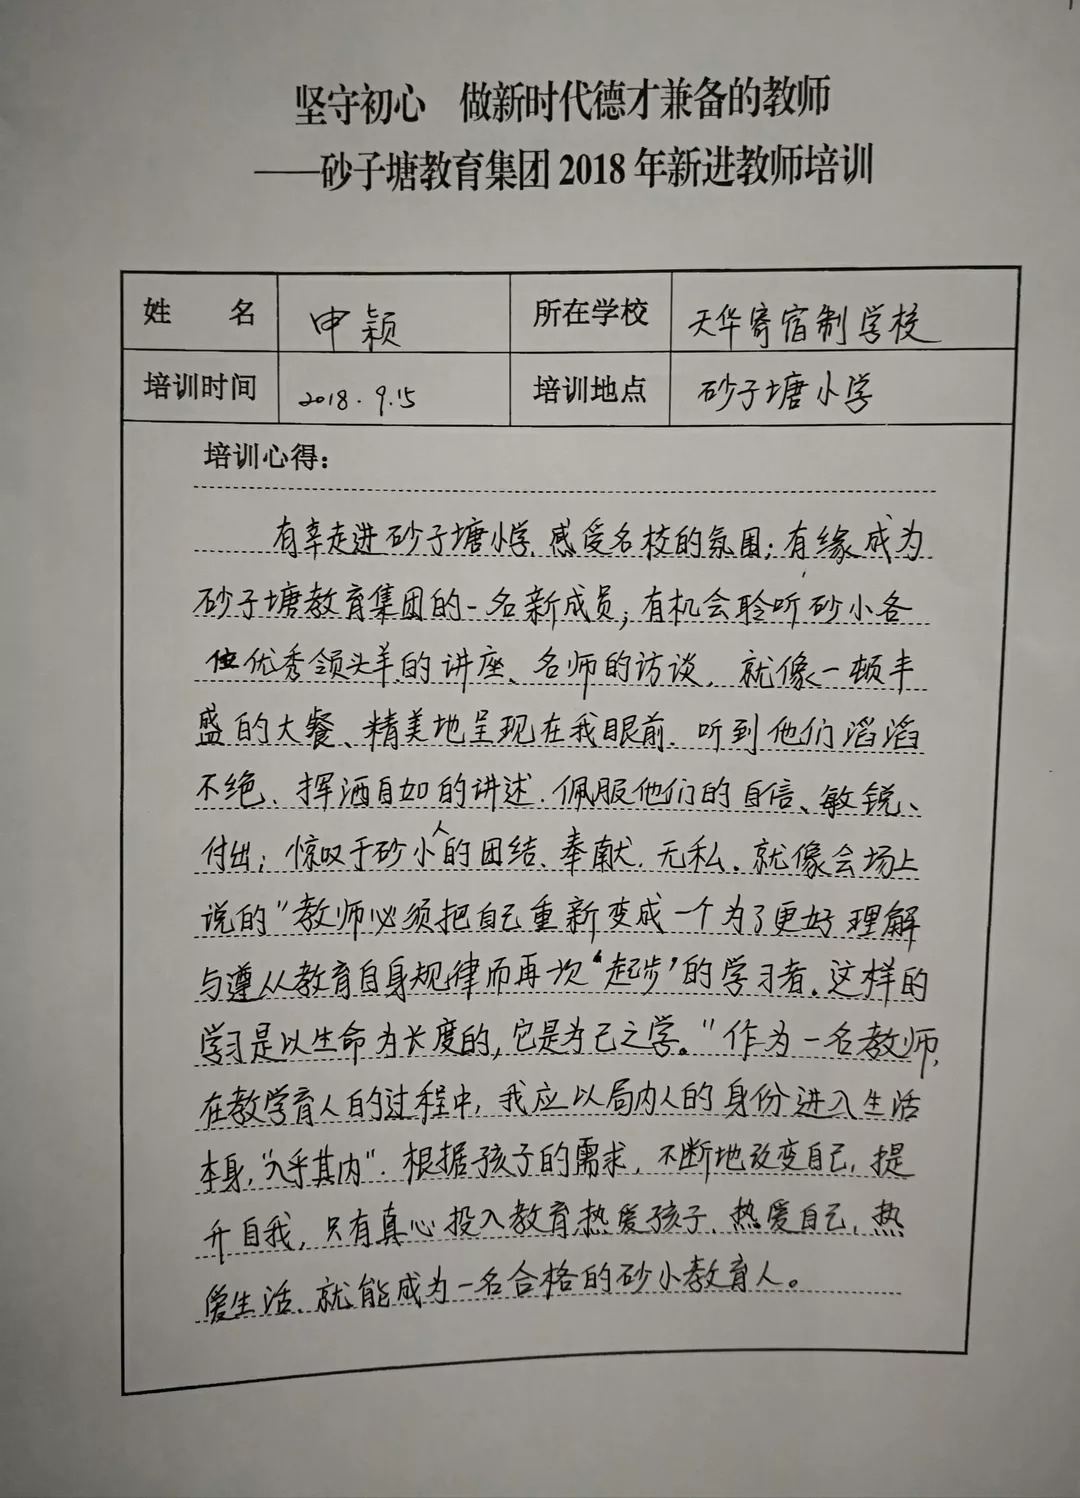 坚守初心　做新时代德才兼备的教师
——砂子塘教育集团 2018 年新进教师培训
姓　名 申颖 所在学校 天华寄宿制学校
培训时间 2018.9.15 培训地点 砂子塘小学
培训心得：
有幸走进砂子塘小学,感受名校的氛围;有缘成为
砂子塘教育集团的一名新成员;有机会聆听砂小各
位优秀领头羊的讲座、名师的访谈,就像一顿丰
盛的大餐、精美地呈现在我眼前.听到他们滔滔
不绝、挥洒自如的讲述.佩服他们的自信、敏锐、
付出;惊叹于砂小人的团结、奉献、无私.就像会场上
说的"教师必须把自己重新变成一个为了更好理解
与遵从教育自身规律而再次‘起步’的学习者.这样的
学习是以生命为长度的,它是为己之学。"作为一名教师,
在教学育人的过程中,我应以局内人的身份进入生活
本身,"入乎其内".根据孩子的需求,不断地改变自己,提
升自我,只有真心投入教育,热爱孩子、热爱自己,热
爱生活、就能成为一名合格的砂小教育人。